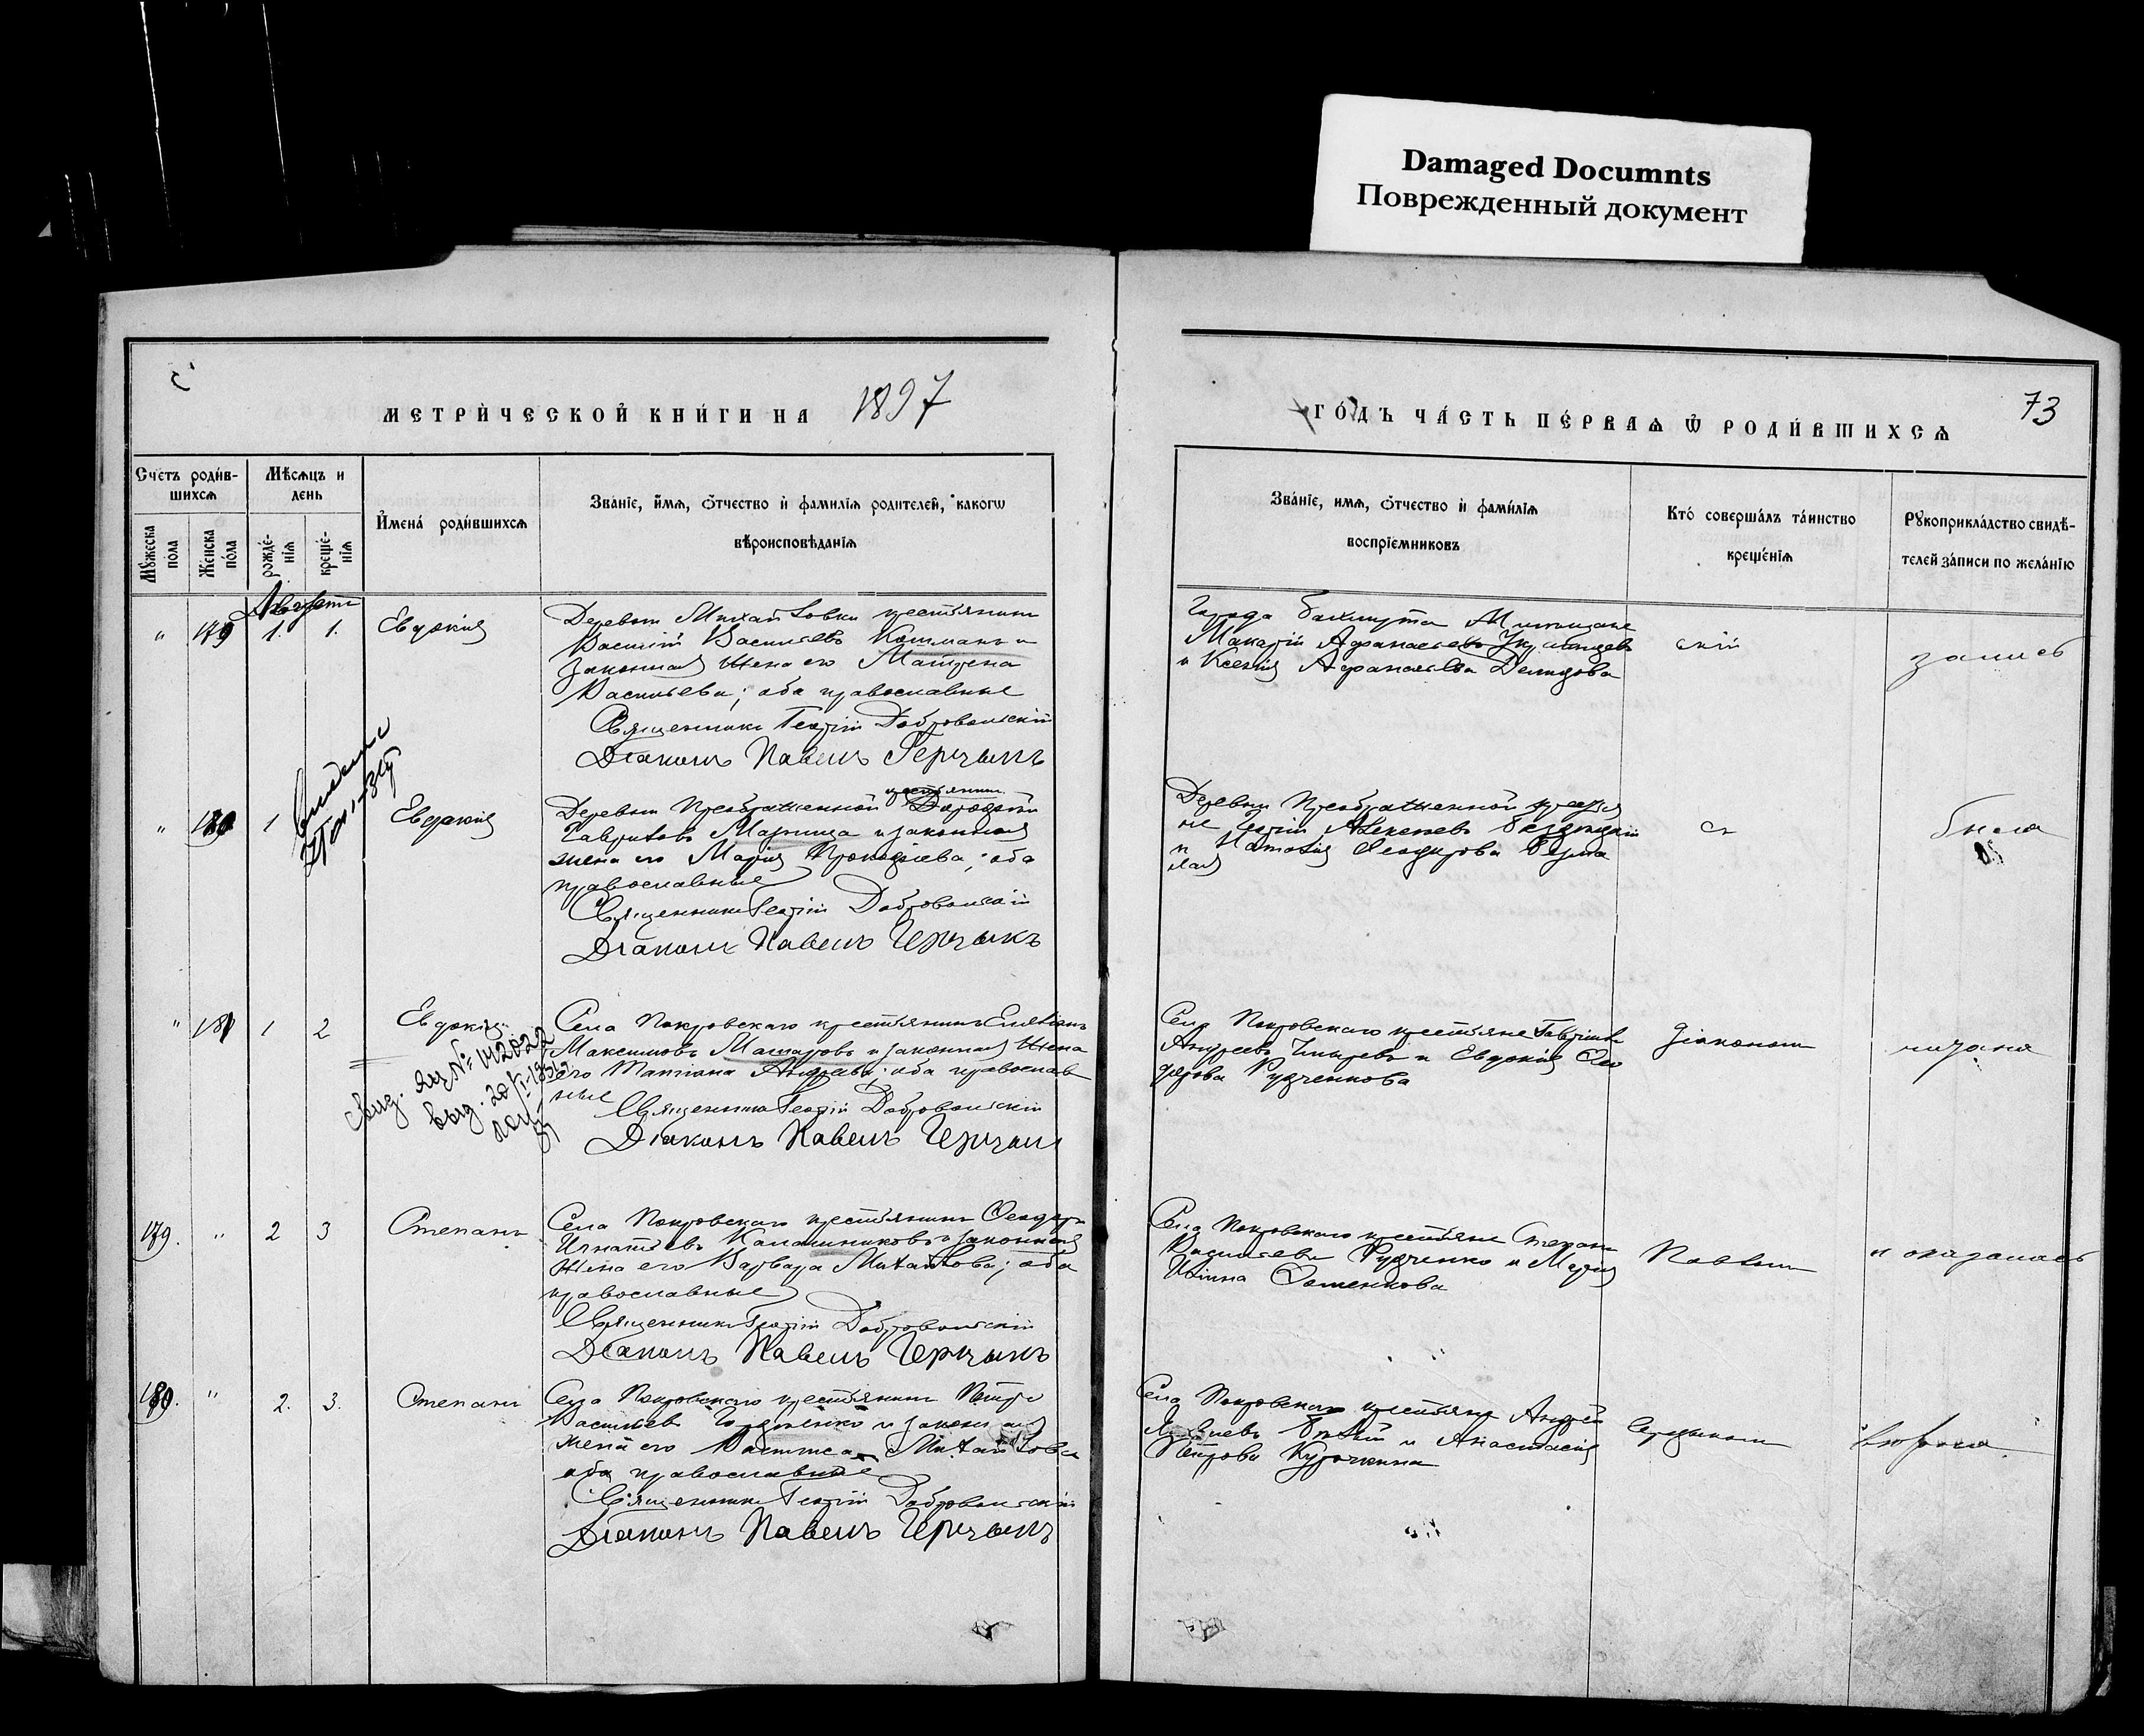 Damaged Documnts
Поврежденный документ
МЕТРИ́ЧЕСКОЙ КНИ́ГИ НА 1897
ГО́ДЪ ЧА́СТЬ ПЕ́РВАѦ Ѡ҆ РОДИ́ВШИХСѦ
73
Счетъ роди́в-
шихсѧ
Мꙋжеска
пола
Же́нска
по́ла
Мѣ́сѧцъ и
день
рожде́-
нїѧ
креще́-
нїѧ
И҆мена́ роди́вшихсѧ
Зва́нїе, и҆́мѧ, ѻ҆́тчество и҆ фами́лїѧ родителей, какогѡ
вѣроисповѣданїѧ
Зва́нїе, имѧ, ѻ҆́тчество и҆ фами́лїѧ
воспрїемниковъ
Кто́ соверша́лъ та́инство
креще́нїѧ
Рꙋкоприкла́дство свидѣ́-
телей за́писи по жела́нїю
Августа
" 179 1. 1. Евдокія
Деревни Михайловки крестьянинъ
Василій Васильевъ Кошманъ и
законная жена его Матрена
Васильева; оба православные
Священникъ Георгій Добровольскій
Діаконъ Павелъ Герчыкъ
Города Бахмута Мѣщане
Макарій Афанасьевъ
и Ксенія Афанасьева Демидова
скій
запись
" 180 1 Евдокія
крестьянинъ
Деревни Преображенной Дорофей
Гавриловъ Марница и законная
жена его Марія Прокофіева; оба
православные
Священникъ Георгій Добровольскій
Діаконъ Павелъ Герчыкъ
Деревни Преображенной крестья
не Алексѣевъ
и Наталія Ѳеодорова
съ
была
" 181 1 2 Евдокія
свид. №: 142022
выд. 20/I-1931
Села Покровскаго крестьянинъ Емельянъ
Максимовъ Машаровъ и законная жена
его Татіана Андреева; оба православ
ные
Священникъ Георгій Добровольскій
Діаконъ Павелъ Герчыкъ
Села Покровскаго крестьяне Гавріилъ
Андреевъ и Евдокія Ѳео
дорова Рудченкова
діакономъ
читана
179. " 2 3 Степанъ
Села Покровскаго крестьянинъ Ѳеодоръ
Игнатьевъ Калашниковъ и законная
жена его Варвара Михайлова; оба
православные
Священникъ Георгій Добровольскій
Діаконъ Павелъ Герчыкъ
Села Покровскаго крестьяне Степанъ
Васильевъ Рудченко и Марія
Ивановна
Павломъ
и оказалась
180. " 2. 3. Степанъ
Села Покровскаго крестьянинъ Петръ
Васильевъ и законная
жена его Василиса Михайлова
оба православные
Священникъ Георгій Добровольскій
Діаконъ Павелъ Герчыкъ
Села Покровскаго крестьяне Андрей
и Анастасія
Петрова Курочкина
Герчыкомъ
вѣрна